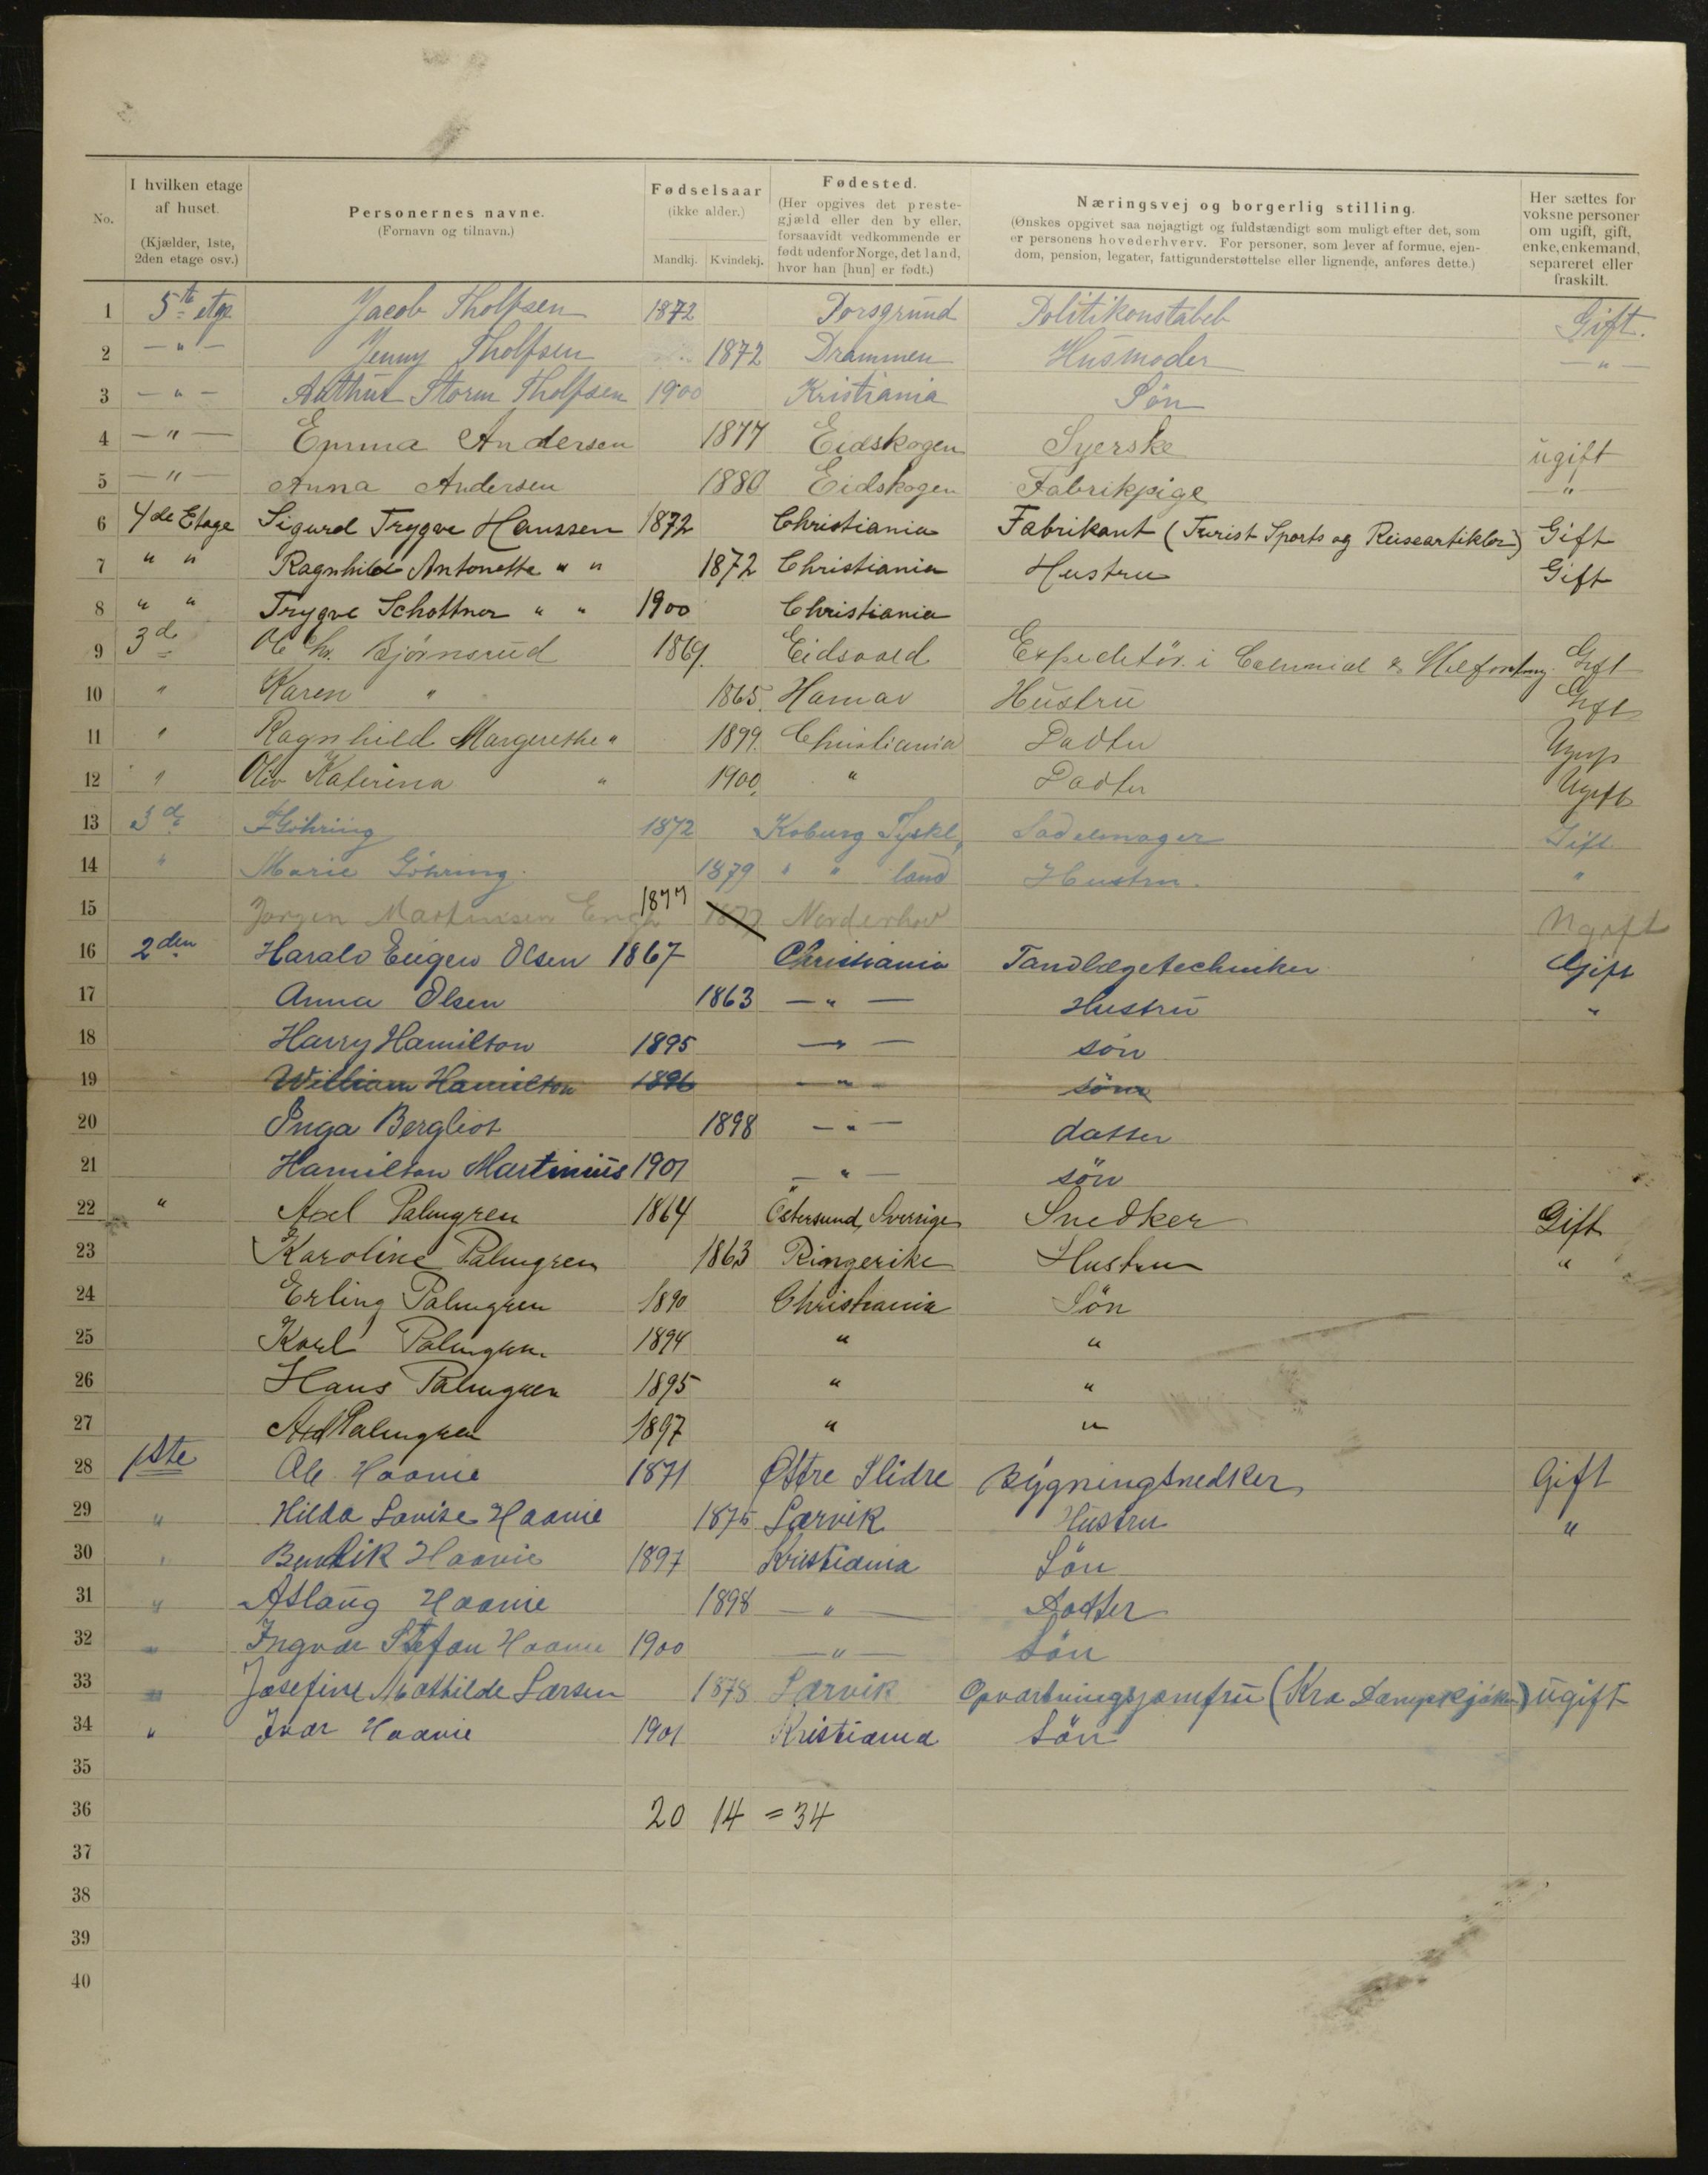 No.
I hvilken etage af huset.
(Kjælder, 1ste, 2den etage osv.)
Personernes navne.
(Fornavn og tilnavn.)
Fødselsaar
(ikke alder.)
Mandkj. Kvindekj.
Fødested.
(Her opgives det prestegjæld eller den by eller, forsaavidt vedkommende er født udenfor Norge, det land, hvor han [hun] er født.)
Næringsvej og borgerlig stilling.
(Ønskes opgivet saa nøjagtigt og fuldstændigt som muligt efter det, som er personens hovederhverv. For personer, som lever af formue, ejendom, pension, legater, fattigunderstøttelse eller lignende, anføres dette.)
Her sættes for voksne personer om ugift, gift, enke, enkemand, separeret eller fraskilt.
1 5te etg. Jacob Tholfsen 1872 Porsgrund Politikonstabel Gift.
2 — " — Jenny Tholfsen 1872 Drammen Husmoder — " —
3 — " — Arthur Storm Tholfsen 1900 Kristiania Sön
4 — " — Emma Andersen 1877 Eidskogen Syerske ugift
5 — " — Anna Andersen 1880 Eidskogen Fabrikpige — " —
6 4de Etage Sigurd Trygve Hanssen 1872 Christiania Fabrikant (Turist Sports og Reiseartikler) Gift
7 " " Ragnhild Antonette " " 1872 Christiania Hustru Gift
8 " " Trygve Schottner " " 1900 Christiania
9 3d Ole Chr. Bjørnsrud 1869. Eidsvold Expeditör i Colonial & Gift
10 " Karen " 1865. Hamar Hustru Gift
11 " Ragnhild Margerethe " 1899. Christiania Datter Ugift
12 " Katerina " 1900. " Datter Ugift
13 3d Göhring 1872 Koburg Tyskl, Sadelmager Gift
14 " Marie Göhring. 1879 " " land Hustru. "
15 Jørgen Martinsen Engh 1877 1877 Norderhov Ugift
16 2den Harald Eugen Olsen 1867 Christiania Tandlægetechniker Gift
17 Anna Olsen 1863 — " — Hustru "
18 Harry Hamilton 1895 — " — sön
19 William Hamilton 1896 — " — sönn
20 Inga Bergliot 1898 — " — datter
21 Hamilton Martinius 1901 — " — sön
22 " Axel Palmgren 1864 Östersund, Sverrige Snedker Gift
23 Karoline Palmgren 1863 Ringerike Hustru "
24 Erling Palmgren 1890 Christiania Sön
25 Karl Palmgren 1894 " "
26 Hans Palmgren 1895 " "
27 Axel Palmgren 1897 " "
28 1ste Ole Haavie 1871 Østre Slidre Bygningsnedker Gift
29 " Hilda Lovise Haavie 1875 Larvik Hustru "
30 " Bendik Haavie 1897 Kristiania Sön
31 " Aslaug Haavie 1898 — " — Datter
32 " Ingvar Stefan Haavie 1900 — " — Sön
33 " Josefine Mathilde Larsen 1878 Larvik Opvartningsjomfru (Kra Dampkjøken) ugift
34 " Ivar Haavie 1901 Kristiania Sön
35
36 20 14 = 34
37
38
39
40